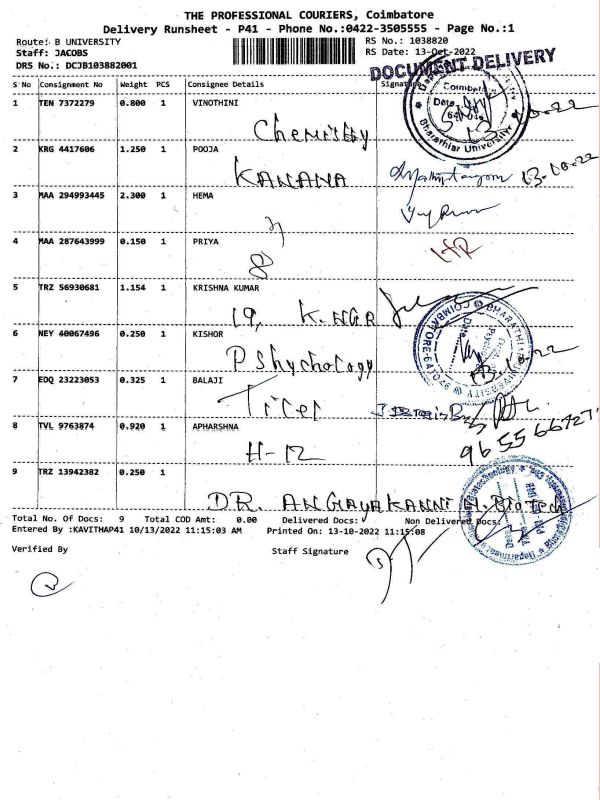 THE PROFESSIONAL COURIERS, Coimbatore
Delivery Runsheet - P41 - Phone No.:0422-3505555 - Page No.:1
Route: B UNIVERSITY
RS No.: 1038820
Staff: JACOBS
RS Date: 13-Oct-2022
DRS No.: DCJB103882001
DOCUMENT DELIVERY
S No Consignment No Weight PCS Consignee Details Signature
1 TEN 7372279 0.800 1 VINOTHINI
Bharathiar University
2 KRG 4417606 1.250 1 POOJA
KANANA
13-10-22
3 MAA 294993445 2.300 1 HEMA
4 MAA 287643999 0.150 1 PRIYA
8
5 TRZ 56930681 1.154 1 KRISHNA KUMAR
19, K.NGR
6 NEY 40067496 0.250 1 KISHOR
Pshychology
13-10-22
7 EDQ 23223053 0.325 1 BALAJI
8 TVL 9763874 0.920 1 APHARSHNA
H-12
9 TRZ 13942382 0.250 1
DR. ANGAYAKANNI
Biotech
Total No. Of Docs: 9 Total COD Amt: 0.00 Delivered Docs: Non Delivered Docs:
Entered By :KAVITHAP41 10/13/2022 11:15:03 AM Printed On: 13-10-2022 11:15:08
Verified By Staff Signature